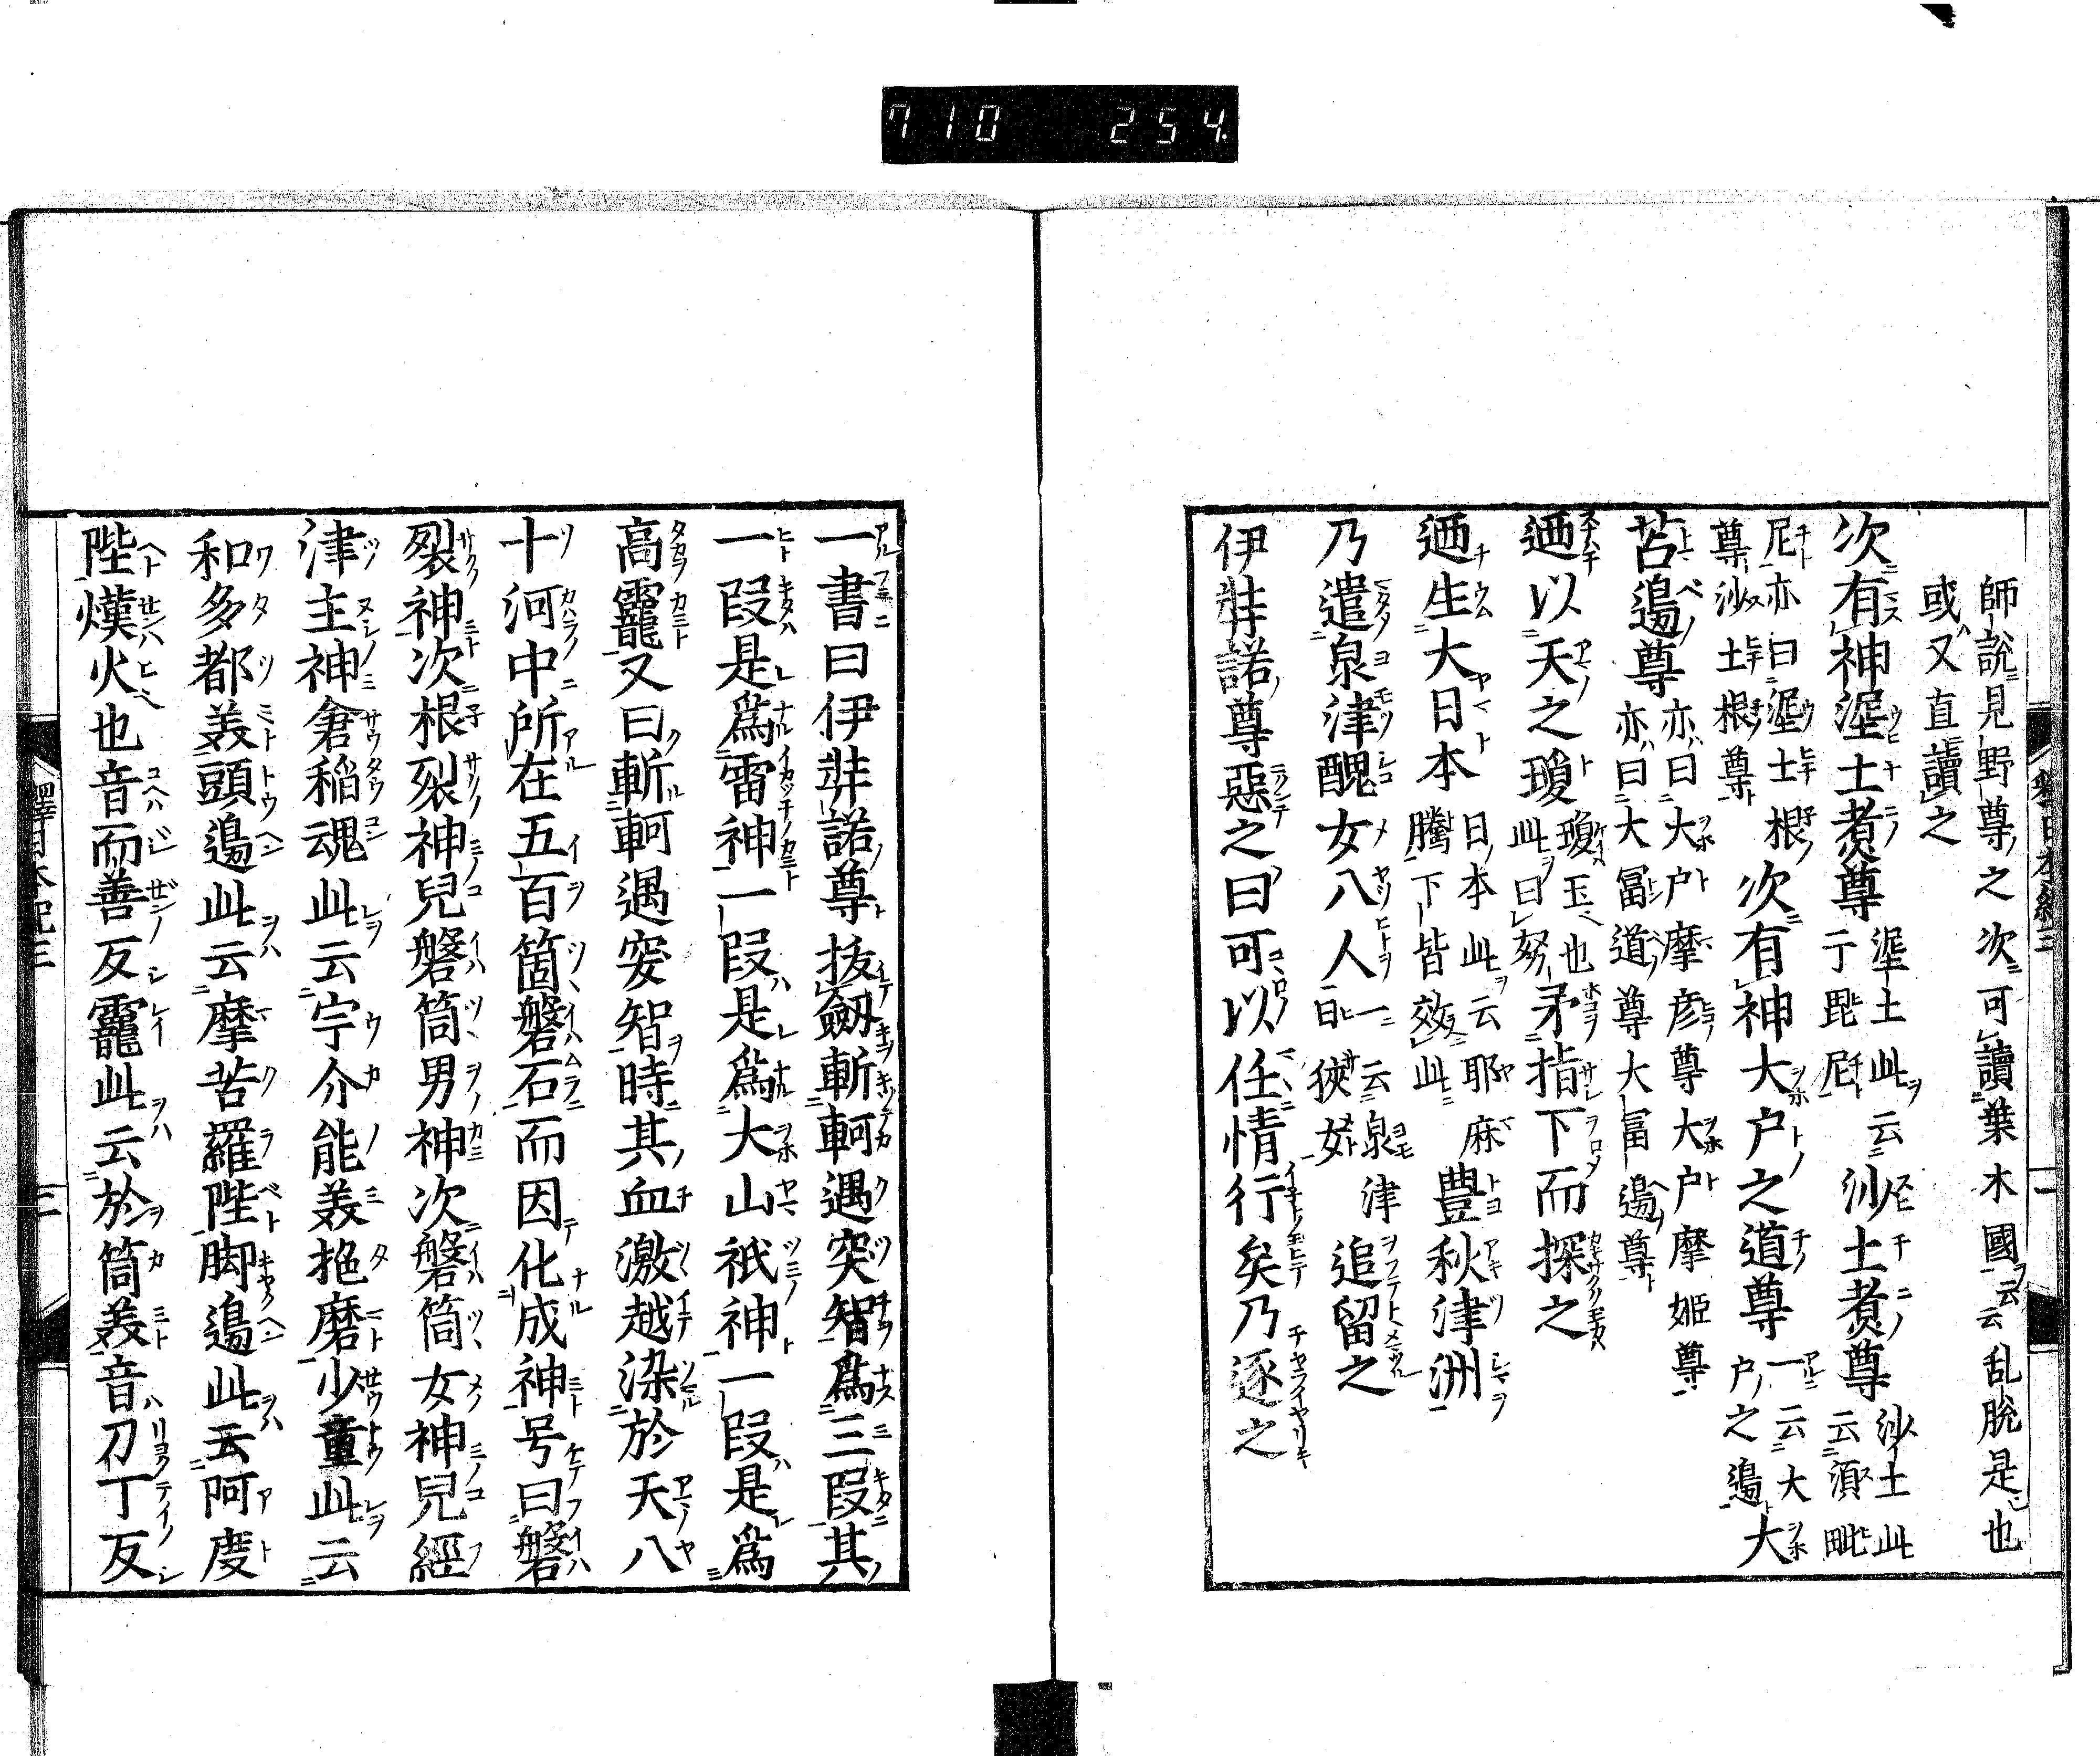 710 254
師説見野尊之次可讀葉木國云云乱脱是也
或又直讀之
次有神埿土煑尊埿土此云于毘尼沙土煑尊沙土此云須毗
尼亦曰埿土根尊沙土根尊次有神大戸之道尊一云大戸之邊大
苫邊尊亦曰大戸摩彦尊大戸摩姬尊亦曰大冨道尊大冨邊尊
迺以天之瓊瓊玉也此曰努矛指下而探之
迺生大日本日本此云耶麻騰下皆效此豐秋津洲
乃遣泉津醜女八人一云泉津日狹女追留之
伊弉諾尊惡之曰可以任情行矣乃逐之
一書曰伊弉諾尊拔劔斬軻遇突智爲三段其
一段是爲雷神一段是爲大山祇神一段是爲
高龗又曰斬軻遇突智時其血激越染於天八
十河中所在五百箇磐石而因化成神号曰磐
裂神次根裂神兒磐筒男神次磐筒女神兒經
津主神倉稲魂此云宇介能美拕磨少童此云
和多都美頭邊此云摩苦羅陛脚邊此云阿度
陛熯火也音而善反龗此云於箇美音力丁反
釋日本紀三
二